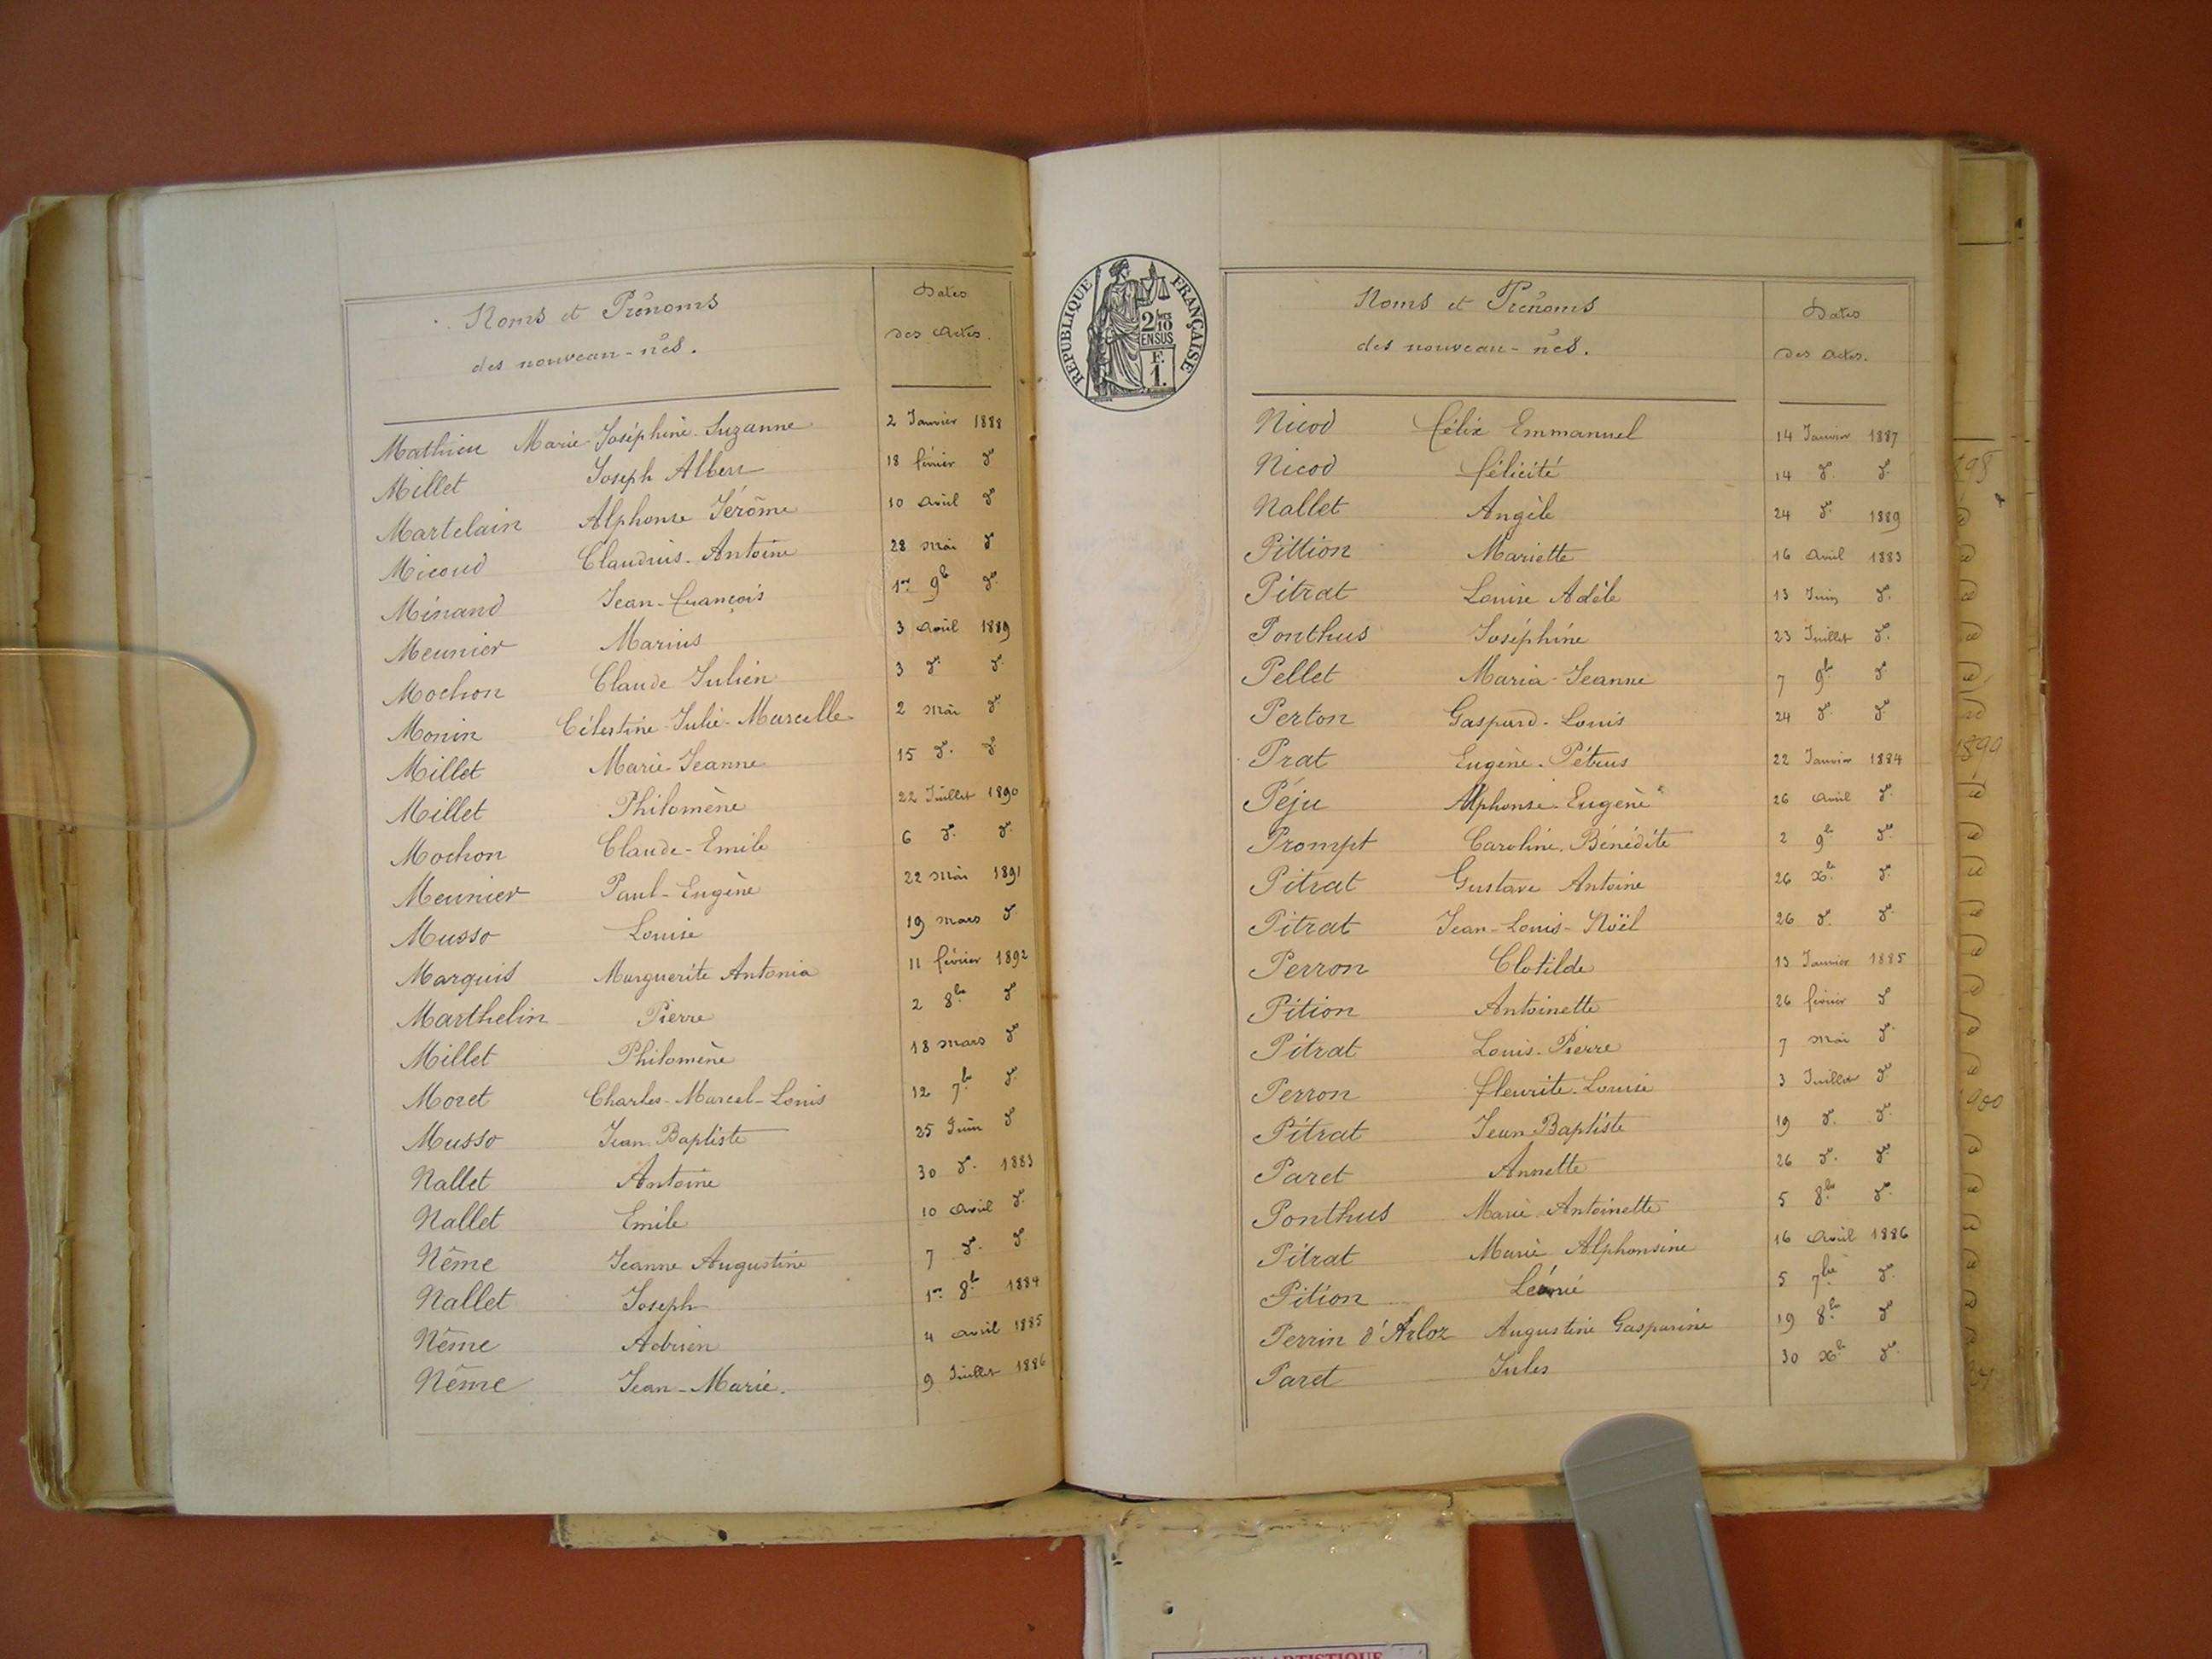 Noms et Prénoms
des nouveau-nés.
Dates
des Actes.
Mathieu Marie Joséphine Suzanne 2 Janvier 1888
Millet Joseph Albert 18 février do
Martelain Alphonse Jérôme 10 Avril do
Micoud Claudius Antoine 28 Mai do
Minand Jean-François 1er 9b do
Meunier Marius 3 Avril 1889
Mochon Claude Julien 3 do do
Monin Célestine Julie Marcelle 2 Mai do
Millet Marie Jeanne 15 do do
Millet Philomène 22 Juillet 1890
Mochon Claude-Emile 6 do do
Meunier Paul-Eugène 22 Mai 1891
Musso Louise 19 Mars do
Marquis Marguerite Antonia 11 février 1892
Marthelin Pierre 2 8bre do
Millet Philomène 18 Mars do
Moret Charles-Marcel-Louis 12 7bre do
Musso Jean Baptiste 25 Juin do
Nallet Antoine 30 do 1883
Nallet Emile 10 Avril do
Nême Jeanne Augustine 7 do do
Nallet Joseph 1er 8b 1884
Nême Adrien 4 Avril 1885
Nême Jean-Marie. 9 Juillet 1886
RÉPUBLIQUE FRANÇAISE
2/10
EN SUS
F.
1.
Noms et Prénoms
des nouveau-nés.
Dates
des Actes.
Nicod Félix Emmanuel 14 Janvier 1887
Nicod félicité 14 do do
Nallet Angèle 24 do 1889
Pittion Mariette 16 Avril 1883
Pitrat Louise Adèle 13 Juin do
Ponthus Joséphine 23 Juillet do
Pellet Maria-Jeanne 7 9bre do
Perton Gaspard-Louis 24 do do
Prat Eugène-Pétrus 22 Janvier 1884
Péju Alphonse Eugène 26 Avril do
Prompt Caroline Bénédite 2 9bre do
Pitrat Gustave Antoine 26 Xbre do
Pitrat Jean-Louis-Noël 26 do do
Perron Clotilde 13 Janvier 1885
Pition Antoinette 26 février do
Pitrat Louis-Pierre 7 Mai do
Perron fleurite-Louise 3 Juillet do
Pitrat Jean Baptiste 19 do do
Paret Annette 26 do do
Ponthus Marie Antoinette 5 8bre do
Pitrat Marie Alphonsine 16 Avril 1886
Pition 5 7bre do
Perrin d'Arloz Augustine Gasparine 19 8bre do
Paret Jules 30 Xbre do
1899